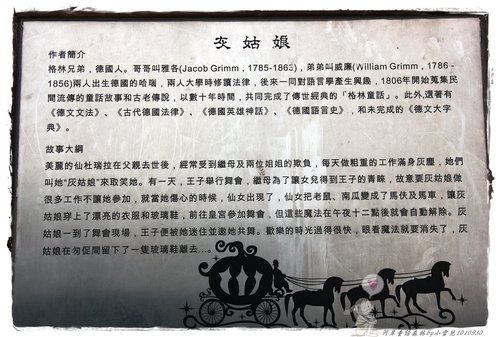 灰姑娘
作者簡介
格林兄弟，德國人。哥哥叫雅各(Jacob Grimm，1785-1863)，弟弟叫威廉(William Grimm，1786 -
1856)兩人出生德國的哈瑙，兩人大學時修讀法律，後來一同對語言學產生興趣，1806年開始蒐集民
間流傳的童話故事和古老傳說，以數十年時間，共同完成了傳世經典的「格林童話」。此外,還著有
《德文文法》、《古代德國法律》、《德國英雄神話》、《德國語言史》，和未完成的《德文大字
典》。
故事大綱
美麗的仙杜瑞拉在父親去世後，經常受到繼母及兩位姐姐的欺負，每天做粗重的工作滿身灰塵，她們
叫她"灰姑娘"來取笑她。有一天，王子舉行舞會，繼母為了讓女兒得到王子的青睞，故意要灰姑娘做
很多工作不讓她參加，就當她傷心的時候，仙女出現了，仙女把老鼠、南瓜變成了馬伕及馬車，讓灰
姑娘穿上了漂亮的衣服和玻璃鞋，前往皇宮參加舞會，但這些魔法在午夜十二點後就會自動解除。灰
姑娘一到了舞會現場，王子便被她迷住並邀她共舞。歡樂的時光過得很快，眼看魔法就要消失了，灰
姑娘在匆促間留下了一隻玻璃鞋離去...。
阿草童話森林by小雪兒1010930